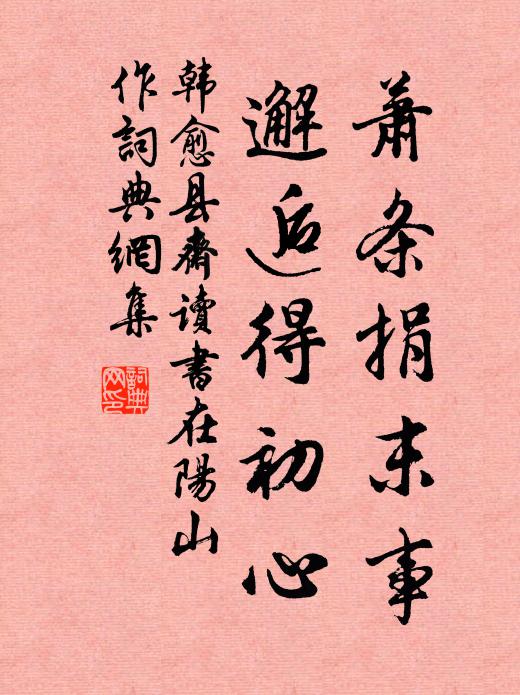 萧条捐末事
邂逅得初心
韩愈县齋讀書在陽山
作詞典網集
詞典網印